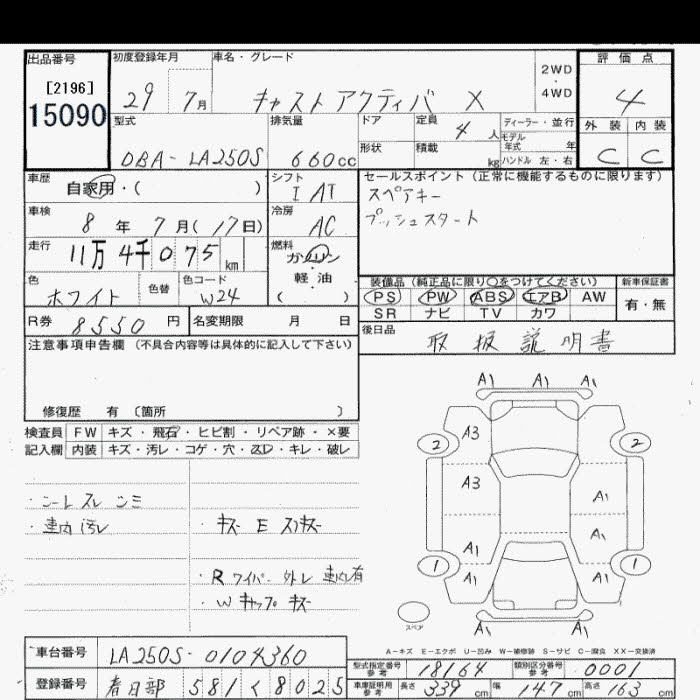 出品番号 初度登録年月 車名・グレード 2WD・4WD 評価点
[2196]
15090 29 7月 キャスト アクティバ X 4
型式 排気量 ドア 定員 4人 ディーラー・並行 外装 内装
形状 積載 kg モデル年式 年 ハンドル 左・右
DBA-LA250S 660cc C C
車歴 自家用・( ) シフト I AT セールスポイント (正常に機能するものに限ります)
スペアキー
プッシュスタート
車検 8年 7月(17日) 冷房 AC
走行 11万4千075km 燃料 ガソリン・軽油 ( )
色 ホワイト 色替 色コード W24
装備品 (純正品に限り○をつけてください) 新車保証書
PS PW ABS エアB AW 有・無
SR ナビ TV カワ
R券 8550円 名変期限 月 日 後日品 取扱説明書
注意事項申告欄 (不具合内容等は具体的に記入して下さい)
修復歴 有 〔箇所 〕
検査員 FW キズ・飛石・ヒビ割・リペア跡・×要
記入欄 内装 キズ・汚レ・コゲ・穴・スレ・キレ・破レ
・シート スレ シミ
・車内汚レ ・キズ E スリキズ
・R ワイパー 外レ 車内有
・W キャップ キズ
A1 A1 A1
A3
2 2
A3
A1
A1
A1
1 1
A1 A1
A1 A1
スペア
A-キズ E-エクボ U-凹み W-補修跡 S-サビ C-腐食 XX-交換済
車台番号 LA250S-0104360
型式指定番号 参考 18164 類別区分番号 参考 0001
登録番号 春日部 581 く 8025
車庫証明用 参考 長さ 339cm 幅 147cm 高さ 163cm